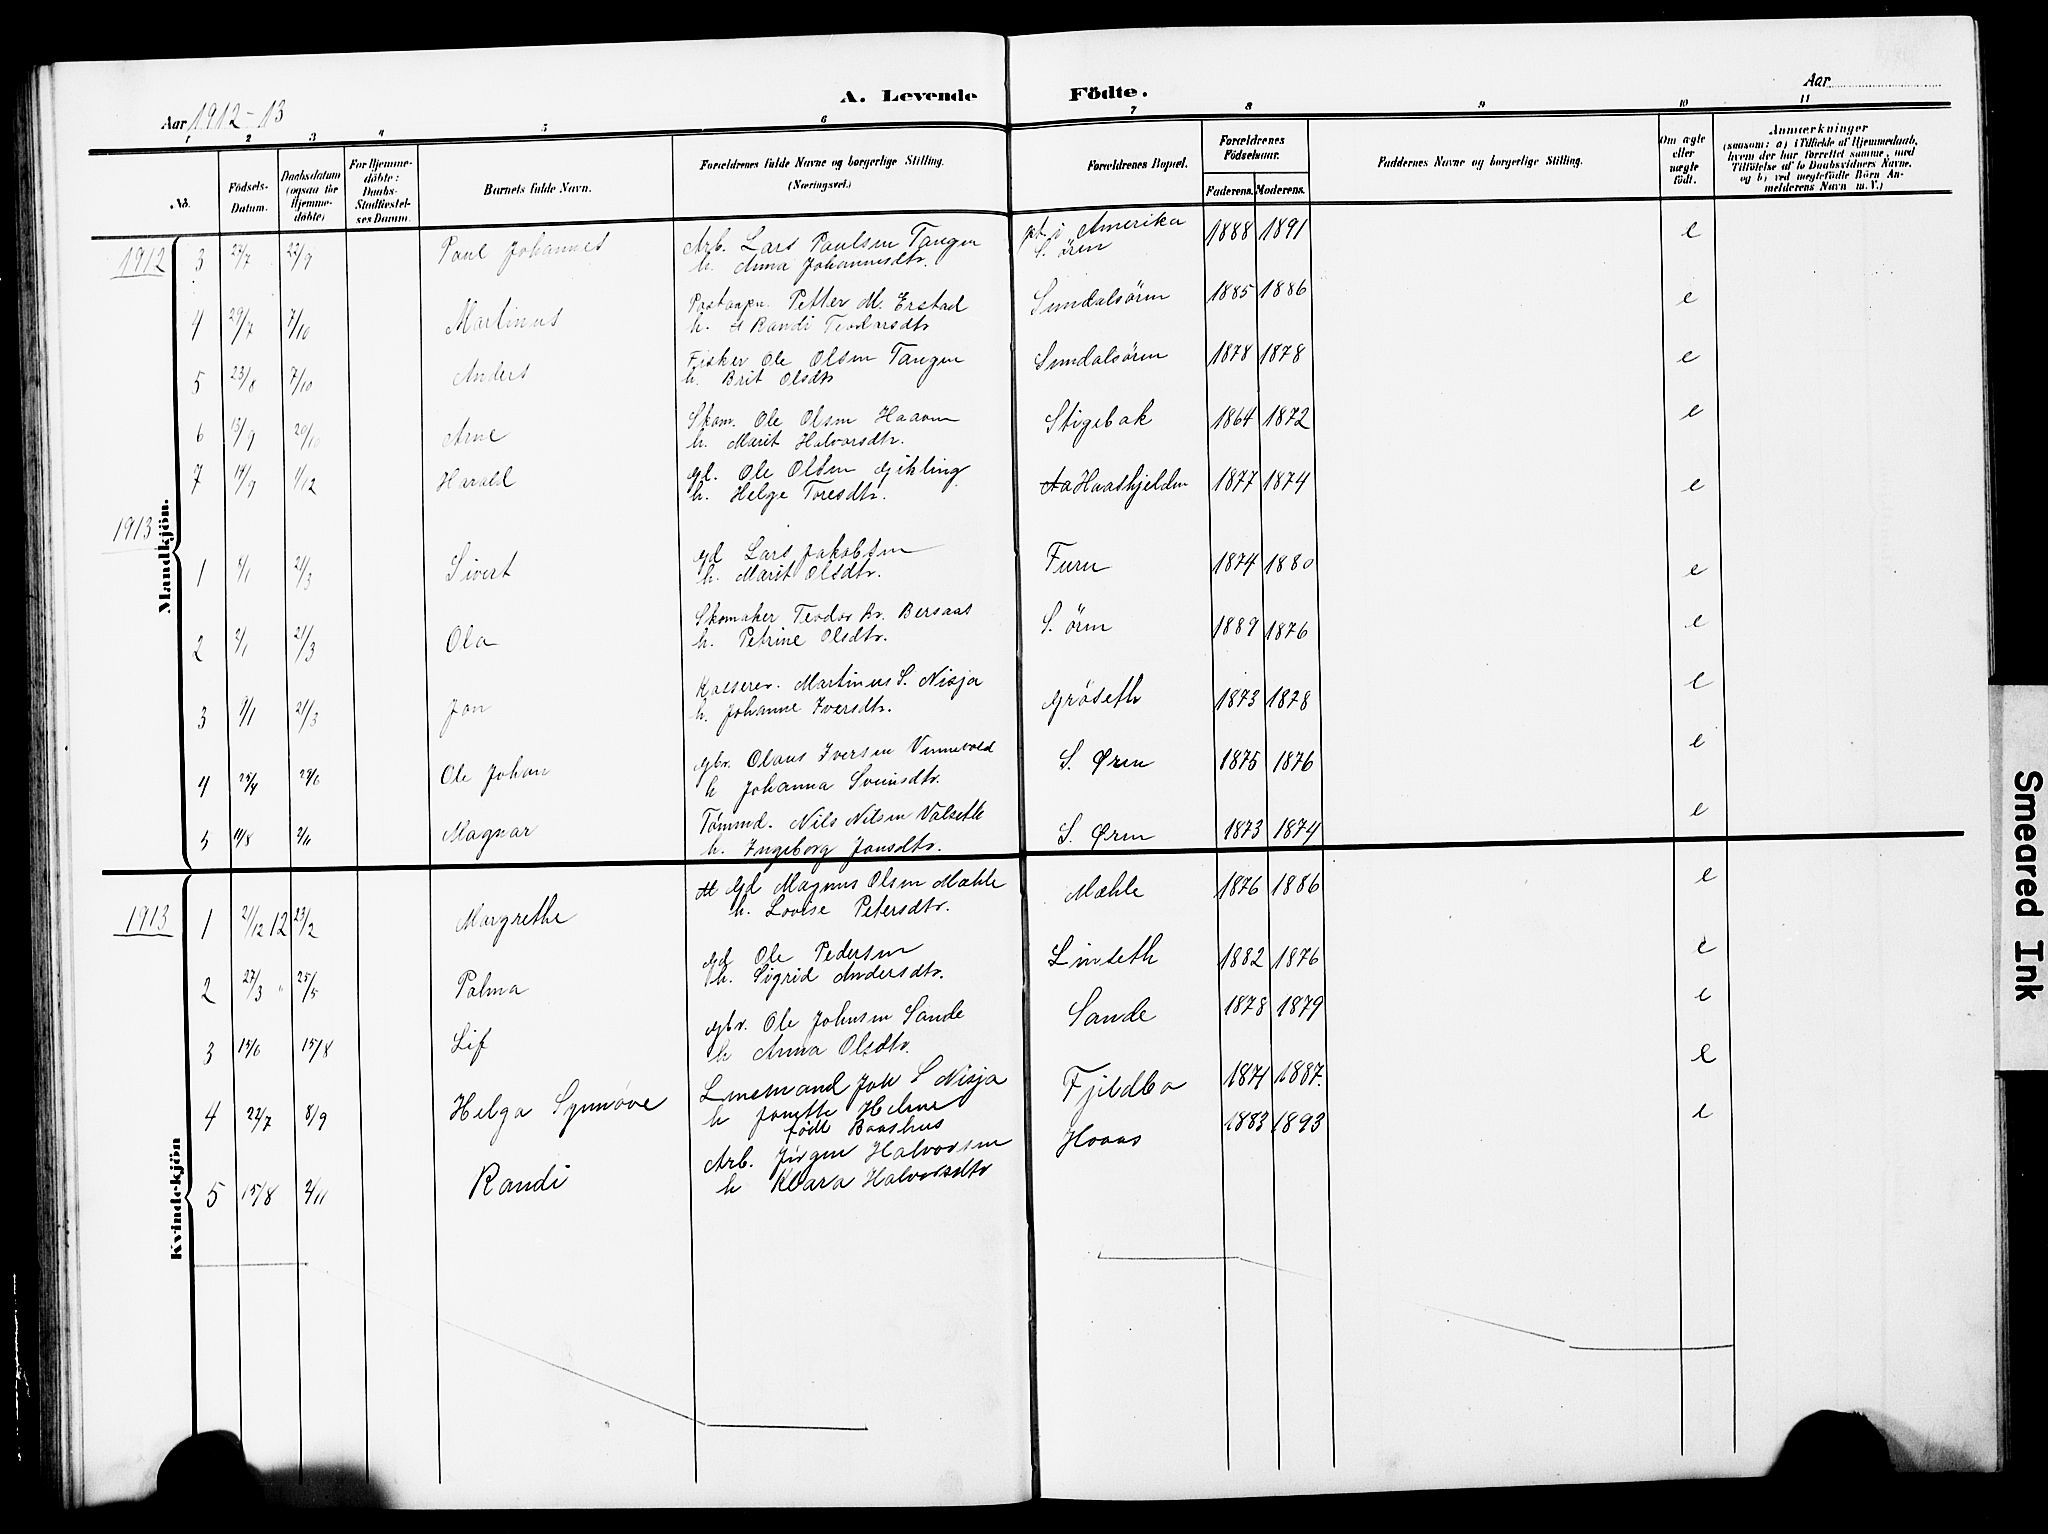 A. Levende Födte.
Aar 1912-13
Aar
1 2 3 4 5 6 7 8 9 10 11
No.
Födsels-Datum.
Daabsdatum (ogsaa for Hjemme-döbte)
For Hjemme-döbte: Daabs-Stadfestel-ses Datum.
Barnets fulde Navn.
Forældrenes fulde Navne og borgerlige Stilling. (Næringsvei.)
Forældrenes Bopæl.
Forældrenes Födselsaar.
Faderens. Moderens.
Faddernes Navne og borgerlige Stilling.
Om ægte eller uægte födt.
Anmærkninger
(saasom: a) i Tilfælde af Hjemmedaab, hvem der har forrettet samme, med Tilföielse af to Daabsvidners Navne, og b) ved uægtefödte Börn An-melderens Navn m. V.)
Mandkjön.
1912 3 27/7 22/9 Paul Johannes Arb. Lars Paulsen Tangen pt. i Amerika 1888 1891 e
h. Anna Johannesdtr. S. ören
4 29/7 7/10 Martinus Postaapn. Petter M. Erstad Sundalsören 1885 1886 e
h. Randi Teodorsdtr
5 23/8 7/10 Anders Fisker Ole Olsen Tangen Sundalsören 1878 1878 e
h. Brit Olsdtr
6 13/9 20/10 Arne Skom. Ole Olsen Haaven Stigebak 1864 1872 e
h. Marit Halvorsdtr.
7 14/9 1/12 Harald gd. Ole Olsen Gikling Haaskjolden 1877 1874 e
h. Helge Toresdtr.
1913
1 4/1 21/3 Sivert gd Lars Jakobsen Furu 1874 1880 e
h. Marit Olsdtr.
2 3/1 21/3 Ola Skomaker Teodor Kr. Bersaas S. ören 1889 1876 e
h. Petrine Olsdtr.
3 9/1 21/3 Jon Kasserer. Martinus S. Nisja Gröseth 1873 1878 e
h. Johanne Iversdtr.
4 25/4 29/6 Ole Johan gbr. Olaus Iversen Vinnevold S. Øren 1875 1876 e
h Johanna Sveinsdtr.
5 11/8 2/11 Magnar Tømmd. Nils Nilsen Valseth S. Øren 1873 1874 e
h. Ingeborg Jonsdtr.
Kvindekjön
1913 1 21/12 12 23/2 Margrethe Gd Magnus Olsen Mæhle Mæhle 1876 1886 e
h. Lovise Petersdtr.
2 27/3 " 25/5 Palma gd Ole Pedersen Linseth 1882 1876 e
h. Sigrid Andersdtr.
3 15/6 15/8 Lif gbr. Ole Johnsen Sande Sande 1878 1879 e
h Anna Olsdtr.
4 22/7 8/9 Helga Synnøve Lensmand Joh S Nisja Fjeldbo 1871 1887. e
h Jonette Helene
født Baashus
5 15/8 2/11 Randi Arb. Jörgen Halvorsen Hoaas 1883 1893 e
h Klara Halvorsdtr
Smeared Ink